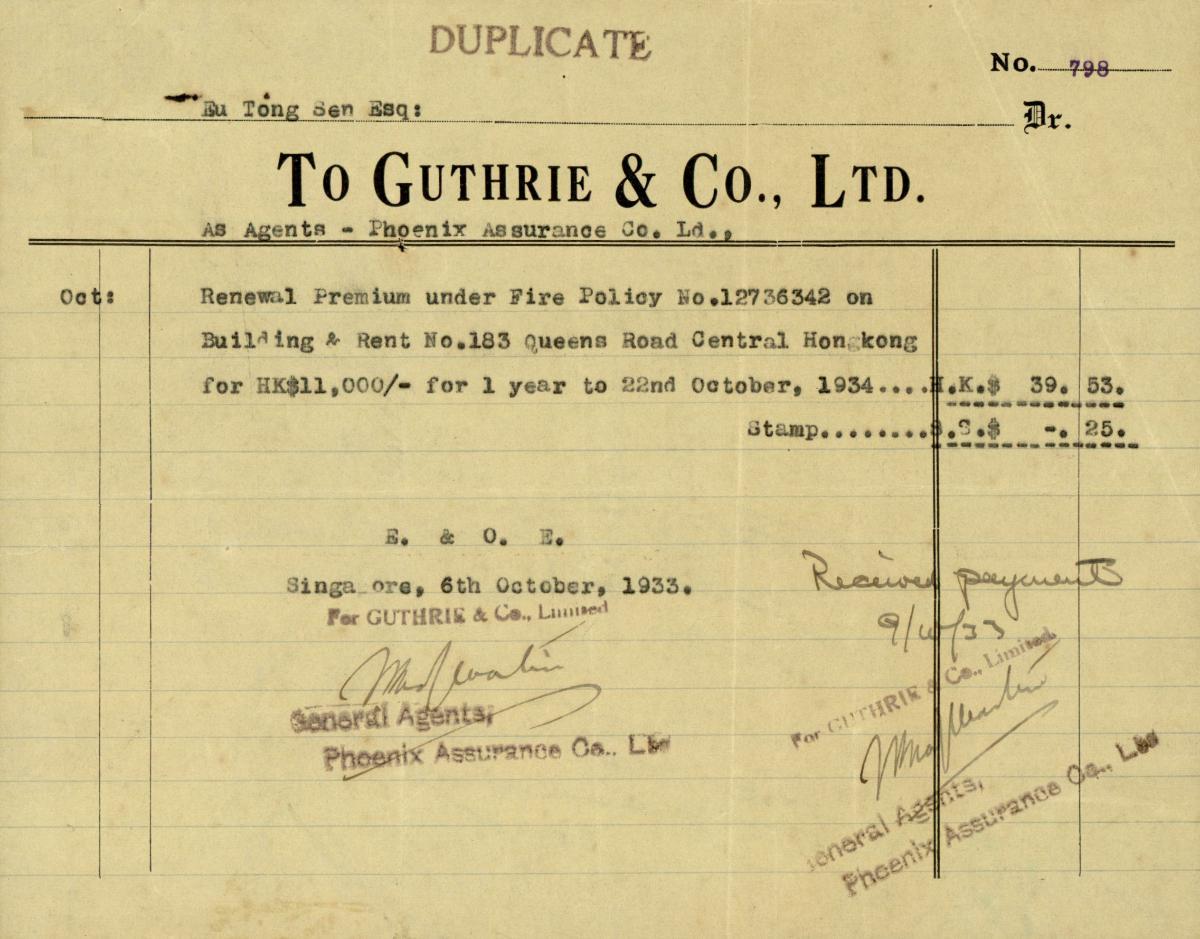 DUPLICATE
No. 798
Eu Tong Sen Esq: Dr.
TO GUTHRIE & CO., LTD.
As Agents - Phoenix Assurance Co. Ld.,
Oct: Renewal Premium under Fire Policy No.12736342 on
Building & Rent No.183 Queens Road Central Hongkong
for HK$11,000/- for 1 year to 22nd October, 1934....H.K.$ 39. 53.
Stamp........S.S.$ -. 25.
E. & O. E.
Singa ore, 6th October, 1933.
For GUTHRIE & Co., Limited
General Agents,
Phoenix Assurance Co., Ltd
Received payment
9/10/33
For GUTHRIE & Co., Limited
General Agents,
Phoenix Assurance Co., Ltd